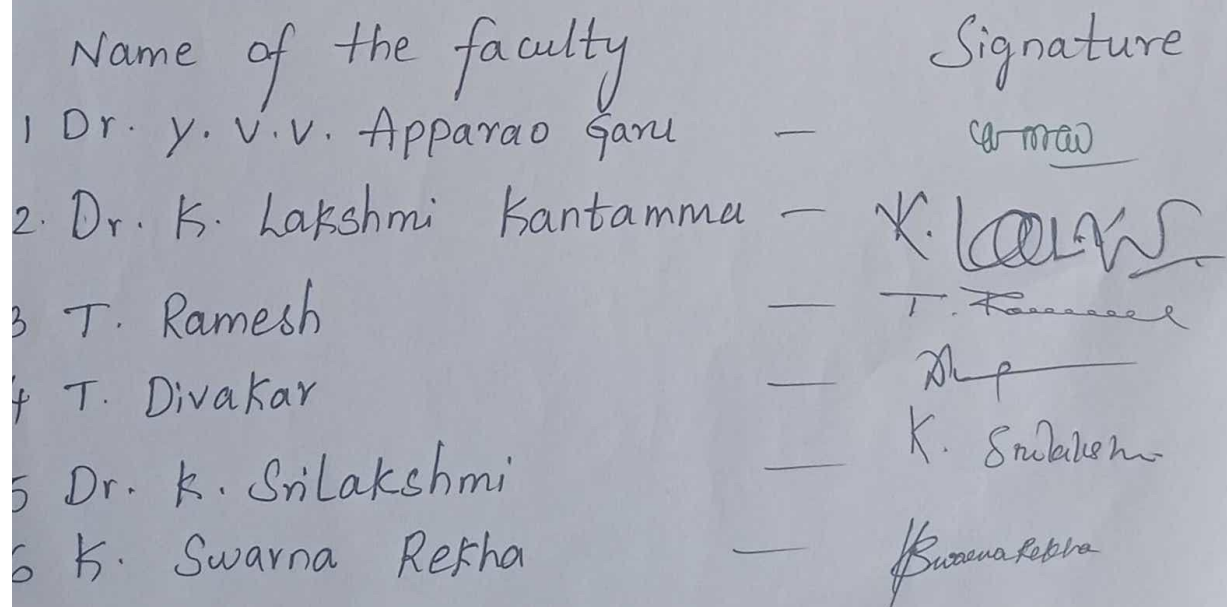 Name of the faculty Signature
1 Dr. Y. V. V. Apparao Garu -
2. Dr. K. Lakshmi Kantamma - K.
3 T. Ramesh - T.
4 T. Divakar -
5 Dr. K. SriLakshmi - K. Srilakshmi
6 K. Swarna Rekha - K Swarna Rekha